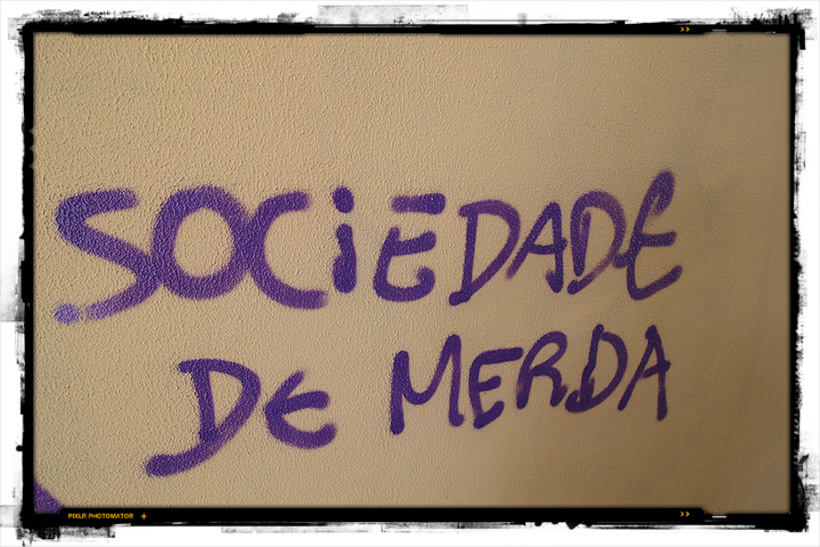 SOCiEDADE
DE MERDA
PIXLR PHOTOMATOR +